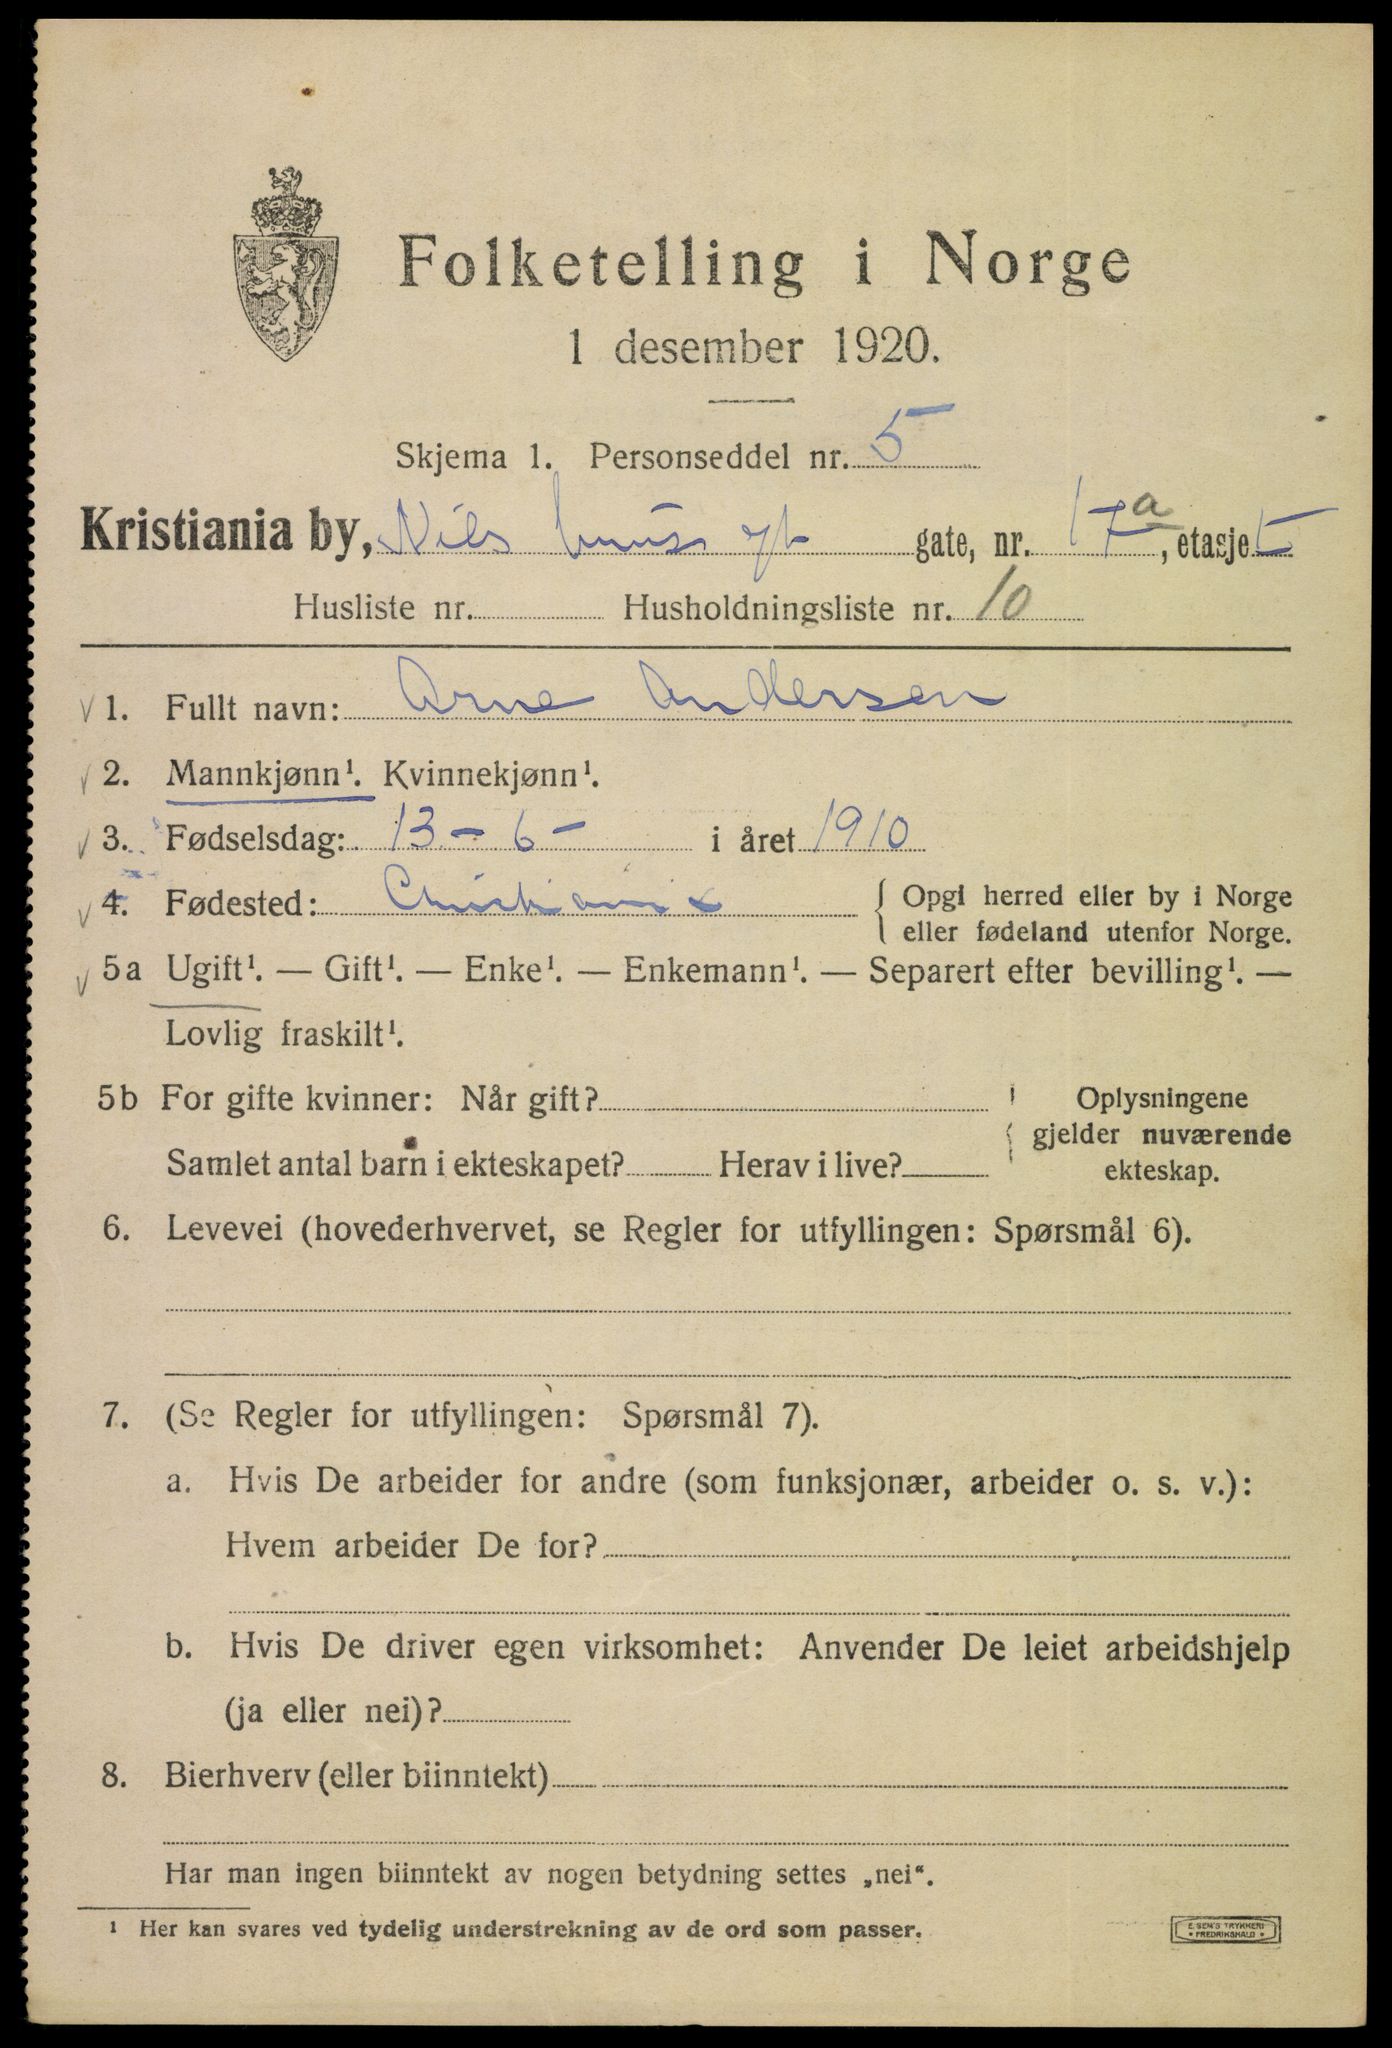 Folketelling i Norge
1 desember 1920.
Skjema 1. Personseddel nr. 5
Kristiania by, Nils Huus gt gate, nr. 17a, etasje 5
Husliste nr. Husholdningsliste nr. 10
1. Fullt navn: Arne Andersen
2. Mannkjønn¹. Kvinnekjønn¹.
3. Fødselsdag: 13 - 6 - i året 1910
4. Fødested: Christiania { Opgi herred eller by i Norge
eller fødeland utenfor Norge.
5a Ugift¹. — Gift¹. — Enke¹. — Enkemann¹. — Separert efter bevilling¹. —
Lovlig fraskilt¹.
5b For gifte kvinner: Når gift?
Samlet antal barn i ekteskapet? Herav i live?
Oplysningene
gjelder nuværende
ekteskap.
6. Levevei (hovederhvervet, se Regler for utfyllingen: Spørsmål 6).
7. (Se Regler for utfyllingen: Spørsmål 7).
a. Hvis De arbeider for andre (som funksjonær, arbeider o. s. v.):
Hvem arbeider De for?
b. Hvis De driver egen virksomhet: Anvender De leiet arbeidshjelp
(ja eller nei)?
8. Bierhverv (eller biinntekt)
Har man ingen biinntekt av nogen betydning settes „nei“.
¹ Her kan svares ved tydelig understrekning av de ord som passer.
E. SEM'S TRYKKERI
• FREDRIKSHALD •